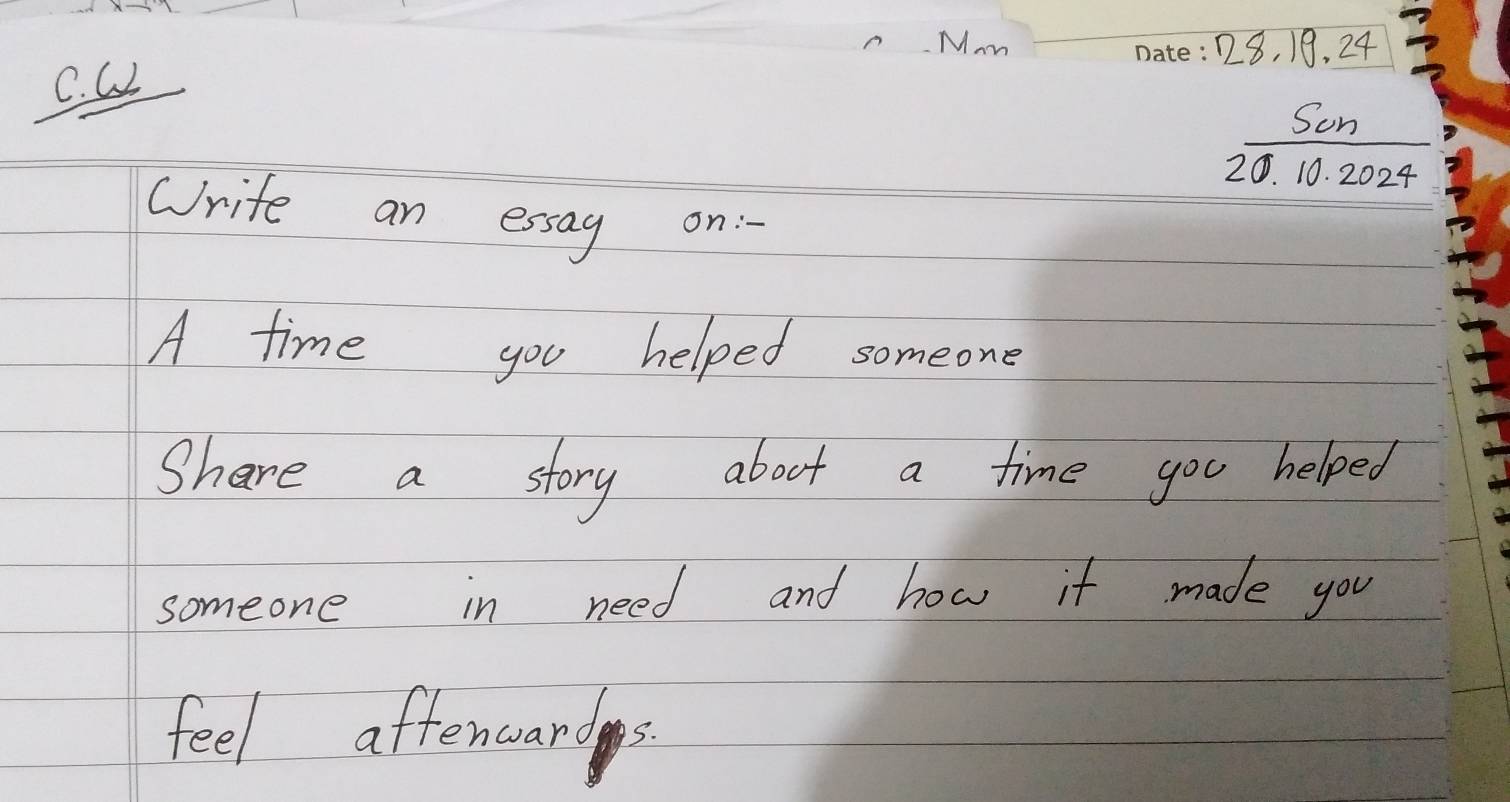 Mon
Date: 28.10.24
C.W
Sun
20.10.2024
Write an essay on:-
A time you helped someone
Share a story about a time you helped
someone in need and how it made you
feel afterwards.